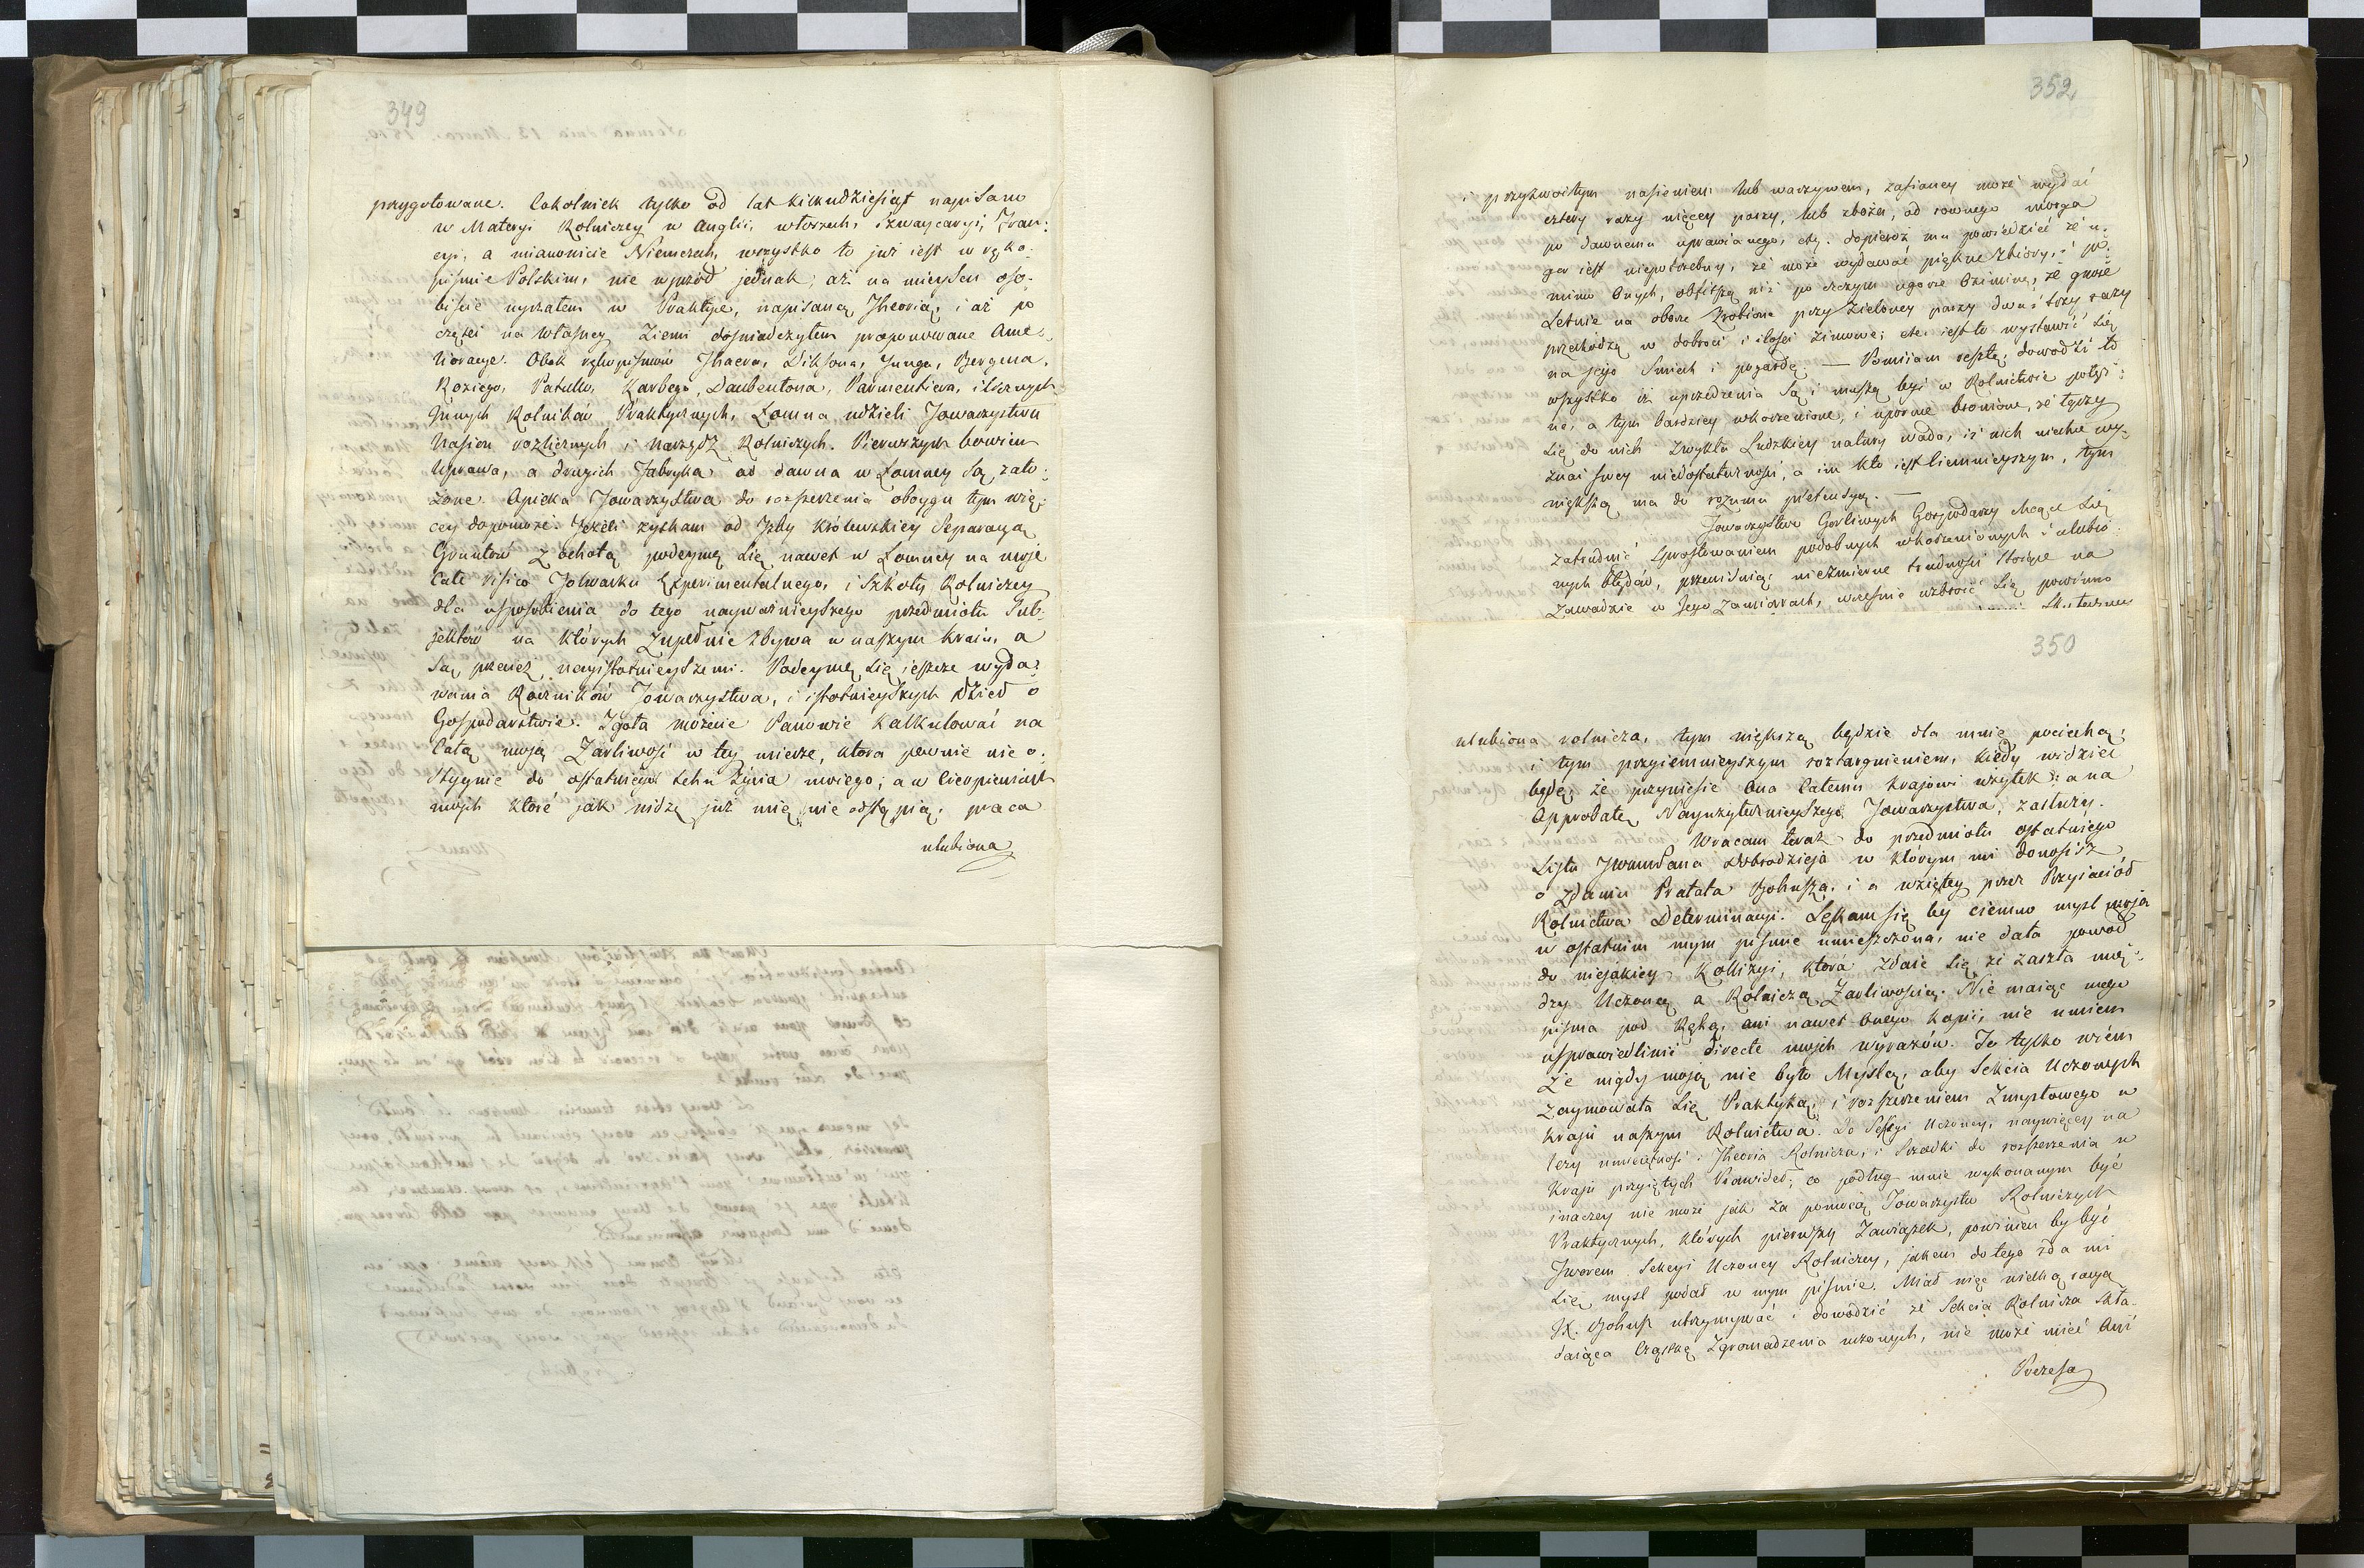 349
przygotowane. Cokolwiek tylko od lat kilkudziesiąt napisano
w Materyi Rolniczey w Anglii, włoszech, szwaycaryi, Fran:
cyi, a mianowicie Niemczech, wszystko to już iest w ręko-
piśmie Polskim, nie wprzód jednak, aż na mieyscu oso-
biście uyrzałem w Praktyce, napisaną Theorią, i aż po
części na własney Ziemi doświadczyłem proponowane Ame-
lioracye. Obok rękopismów Thaera, Diksona, Junga, Bergena,
Roziego, Patullo, Karbego, Daubentona, Parmentiera, i licznych
Innych Rolników Praktycznych, Łomna udzieli Towarzystwu
Nasion rozlicznych i Narzędz Rolniczych. Pierwszych bowiem
Uprawa, a drugich Fabryka od dawna w Łomney są zało:
żone. Opieka Towarzystwa do rozszerzenia oboyga tym wię:
cey dopomoże. Jeżeli zyskam od Izby Królewskiey Separacyą
Gruntów z ochotą podeymę się nawet w Łomney na moje
całe risico Folwarku Experimentalnego, i Szkoły Rolniczey
dla usposobienia do tego naywaźnieyszego przedmiotu Sub-
jektow na których zupełnie zbywa w naszym kraiu, a
Są przecież nayistotnieyszemi. Podeymę się ieszcze wyda:
wania Roczników Towarzystwa, i istotnieyszych Dzieł o
Gospodarstwie. Zgoła możecie Panowie kalkulować na
całą moją Żarliwość w tey mierze, ktora pewnie nie o:
stygnie do ostatniego tchu życia mojego; a w cierpieniach
mych które jak widzę już mię nie odstąpią, praca
ulubiona
352
przyzwoitym nasieniem lub warzywem, zasianey może wydać
cztery razy więcey paszy, lub zboża, od rownego morga
po dawnemu uprawianego, etc. dopieroż mu powiedzieć że u-
gor iest niepotrzebny, że może wydawać piękne zbiory, i po-
mimo onych, obfitszą niż po czczym ugorze oziminę, że gnoie
Letnie na oborze zrobione przy zieloney paszy dwa i trzy razy
przechodzą w dobroci i ilości zimowe; etc. iest to wystawić się
na jego śmiech i pogardę. — Pomijam resztę; dowodzi to
wszystko iż uprzedzenia są i muszą być w Rolnictwie potęż:
ne, a tym bardziey wkorzenione, i upornie bronione, że łączy
się do nich zwykła Ludzkiey natury wada, iż nich niechce wy-
znać swey niedostateczności, a im kto iest ciemnieyszym, tym
większą ma do rozumu pretensyą. —
Towarzystwo Gorliwych Gospodarzy chcące się
zatrudnić sprostowaniem podobnych wkorzenionych i ulubio-
nych błędów, przewidując niezmierne trudności stojące na
zawadzie w Jego zamiarach, wcześnie uzbroić się powinno
Skuteczne
350
ulubiona rolnicza, tym większą będzie dla mnie pociechą;
i tym przyiemnieyszym roztargnieniem, kiedy widzieć
będę, że przyniesie ona całemu krajowi użytek: a na
Approbatę Nayużytecznieyszego Towarzystwa, zasłuży.
Wracam teraz do przedmiotu ostatniego
Listu JWaćPana Dobrodzieja w którym mi donosisz
o zdaniu Prałata Bohusza, i o wziętey przez Przyiaciół
Rolnictwa Determinacyi. Lękam się by ciemno mysl moja
w ostatnim mym pismie umieszczona, nie dała powod
do niejakiey Kollizyi, która zdaie się że zaszła mię-
dzy Uczoną a Rolniczą Żarliwością. Nie maiąc mego
pisma pod ręką, ani nawet onego kopii, nie umiem
usprawiedliwić directe moich wyrazów. To tylko wiém
że nigdy moją nie było Myślą, aby Sekcia Uczonych
zaymowała się Praktyką, i rozszerzeniem Zmysłowego w
kraju naszym Rolnictwa. Do Sekcyi Uczoney, naywięcey na
leży umieiętność i Theoria Rolnicza, i Srzodki do rozszerzenia w
kraju przyiętych Prawideł; co podług mnie wykonanym być
inaczey nie może jak za pomocą Towarzystw Rolniczych
Praktycznych, których pierwszy Zawiązek, powinien by być
Tworem Sekcyi Uczoney Rolniczey, jakem do tego zda mi
się mysl podał w mym pismie. Miał więc wielką racyą
JX. Bohusz utrzymywać i dowodzić że Sekcia Rolnicza Skła-
daiąca Cząstkę Zgromadzenia uczonych, nie może mieć Ani
Prezesa